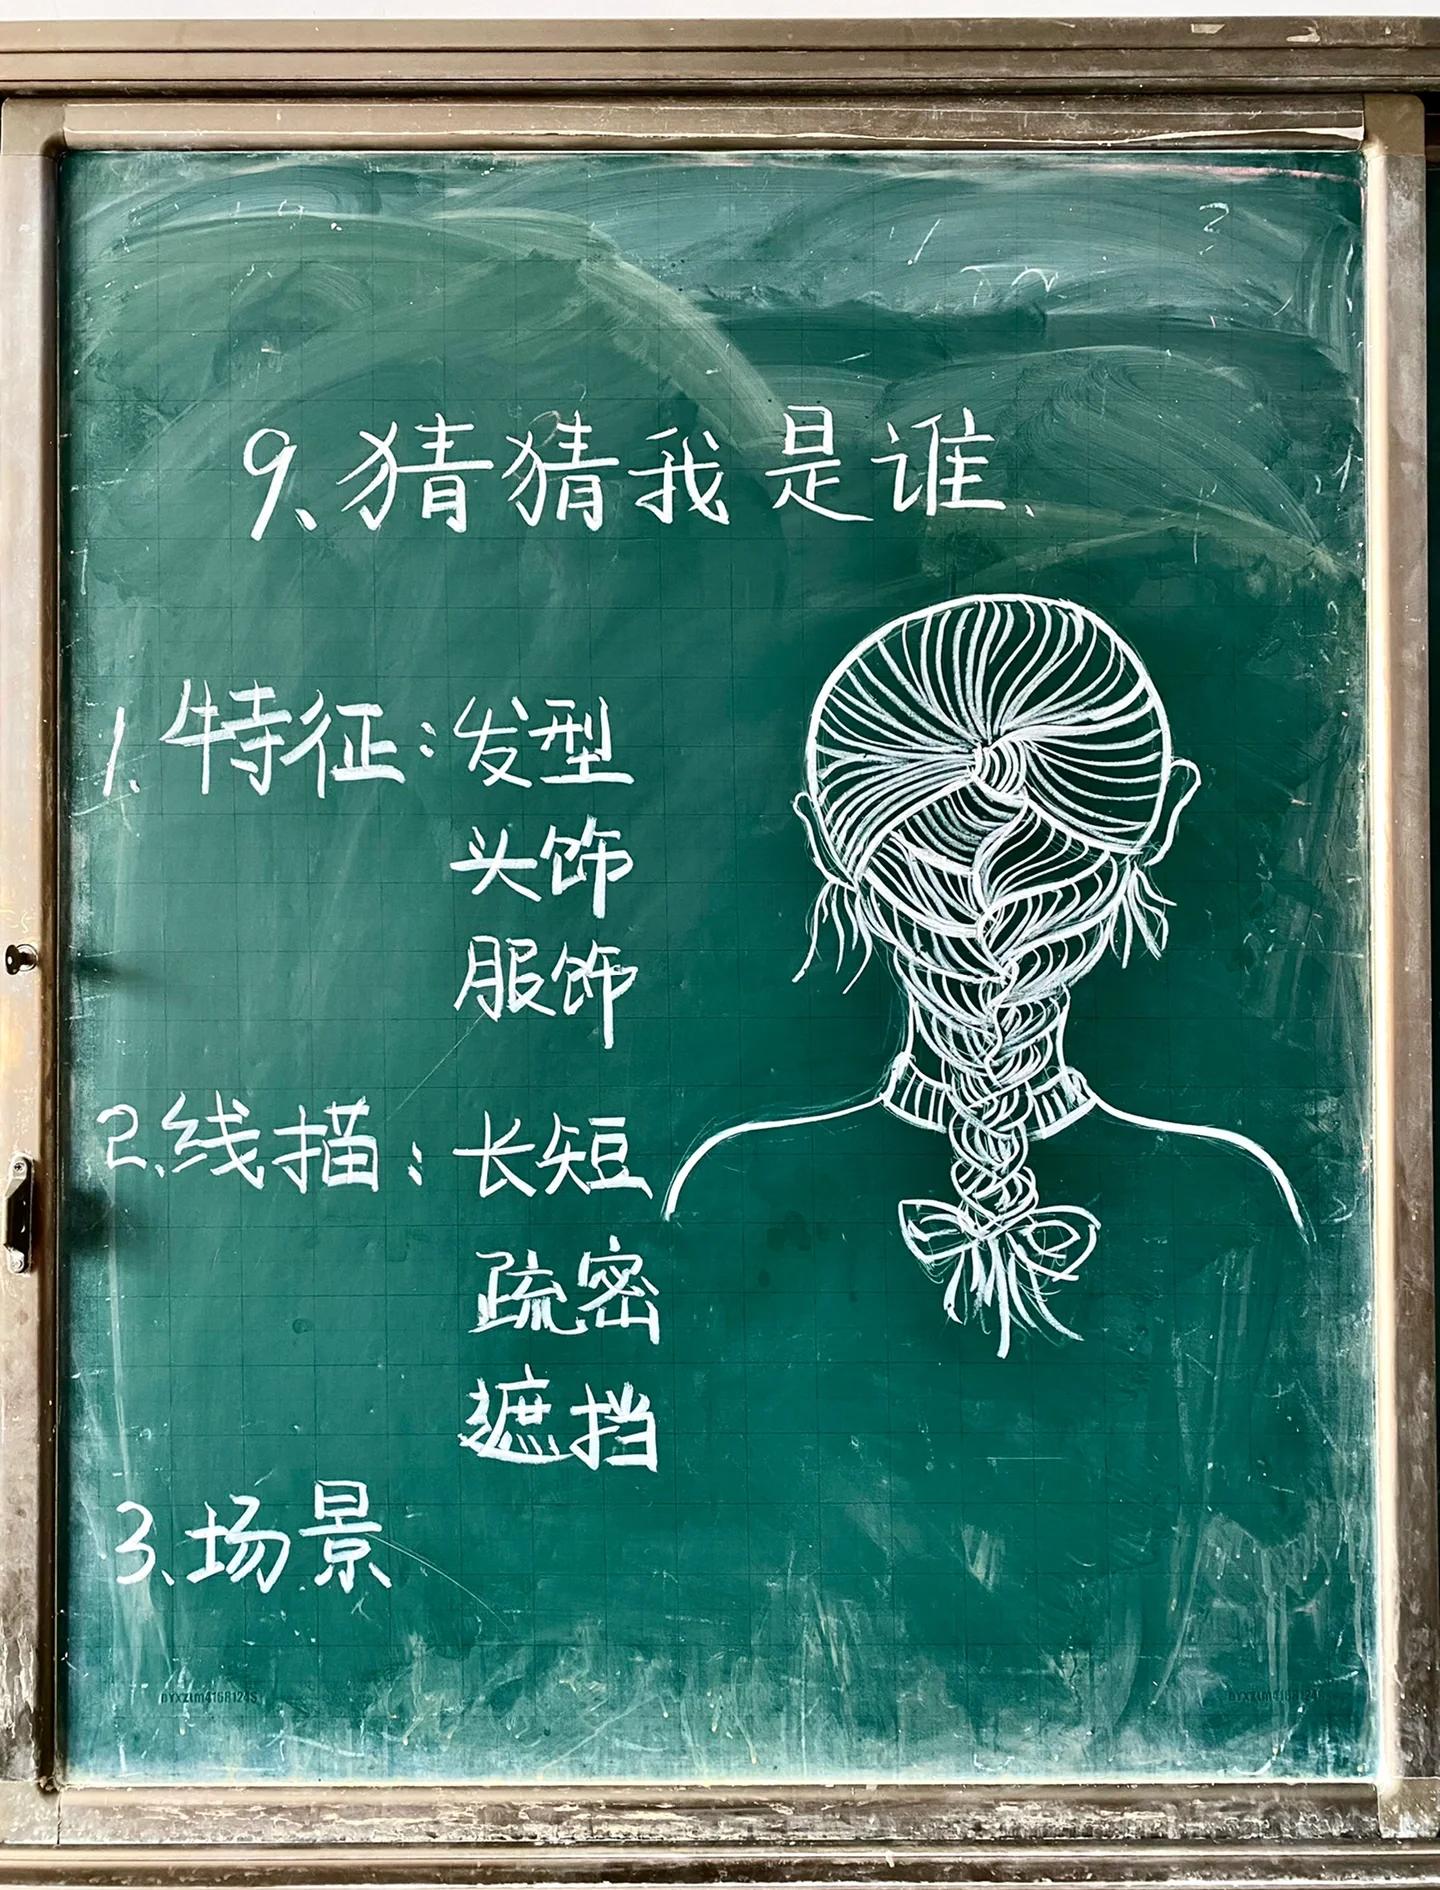 9、猜猜我是谁、
1、特征：发型
头饰
服饰
2、线描：长短
疏密
遮挡
3、场景